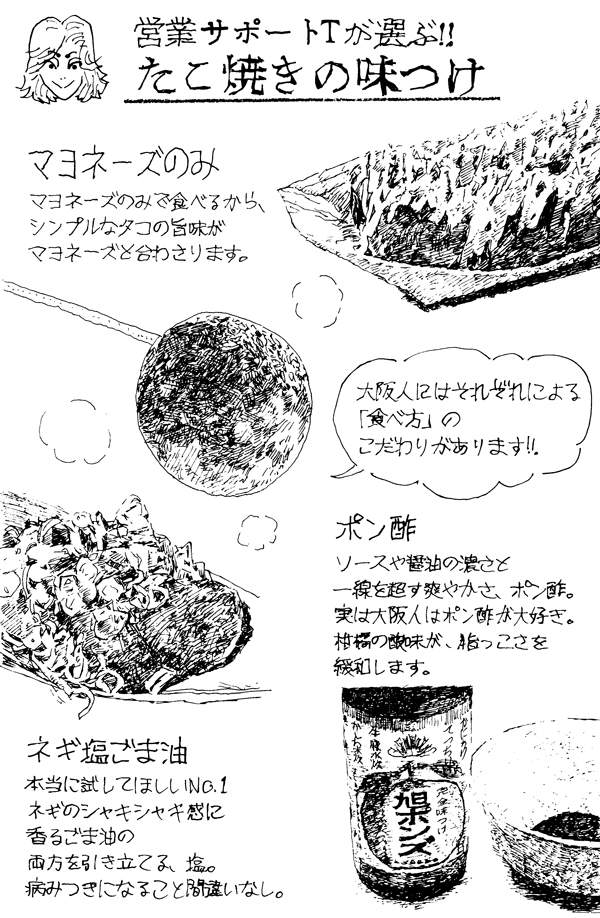 営業サポートTが選ぶ!!
たこ焼きの味つけ
マヨネーズのみ
マヨネーズのみで食べるから、
シンプルなタコの旨味が
マヨネーズと合わさります。
大阪人にはそれぞれによる
「食べ方」の
こだわりがあります!!.
ポン酢
ソースや醤油の濃さと
一線を超す爽やかさ、ポン酢。
実は大阪人はポン酢が大好き。
柑橘の酸味が、脂っこさを
緩和します。
ネギ塩ごま油
本当に試してほしいNO.1
ネギのシャキシャキ感に
香るごま油の
両方を引き立てる、塩。
病みつきになること間違いなし。
完全味つけ
旭ポンズ